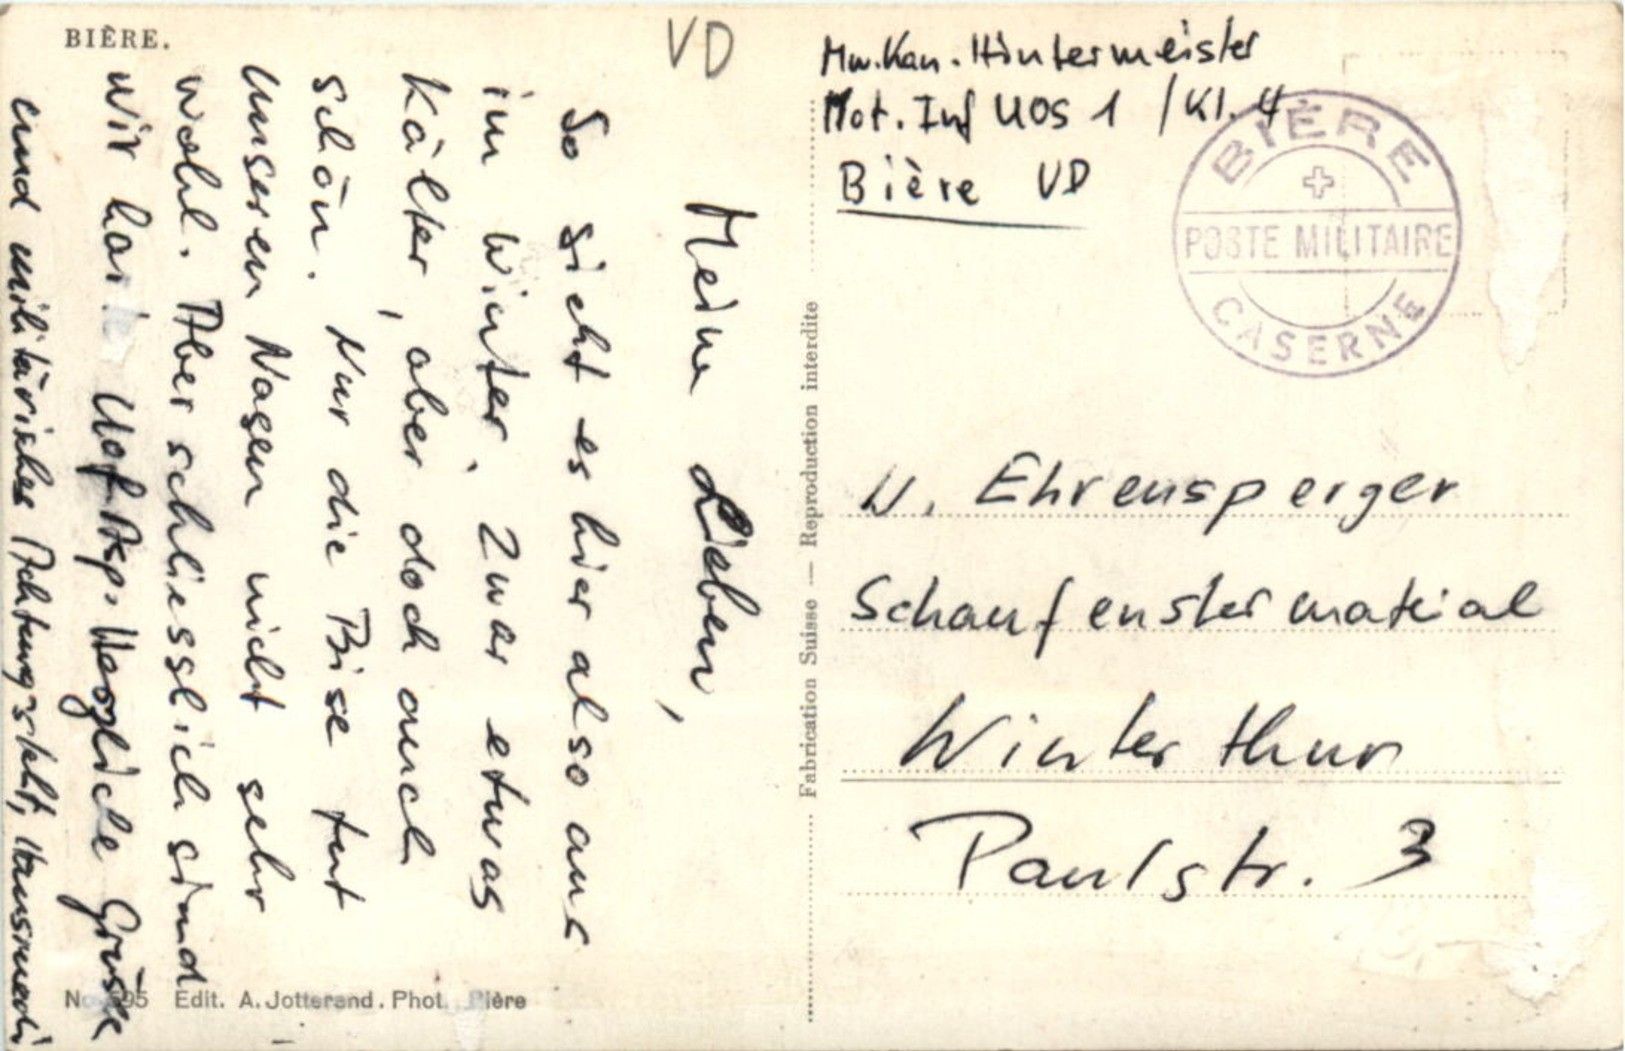 BIÈRE.
VD
Meine Lieben,
So sieht es hier also aus
im Winter. Zwar etwas
kälter, aber doch auch
schön. Nur die Bise tut
unseren Nasen nicht sehr
wohl. Aber schliesslich sind
wir harte Uof. Asp. Herzliche Grüsse
und militärisches Achtungstellt,
No 595 Edit. A. Jotterand. Phot. Bière
Fabrication Suisse — Reproduction interdite
Mw. Kan. Hintermeister
Mot. Inf UOS 1 / Kl. 4
Bière VD
BIÈRE
POSTE MILITAIRE
CASERNE
W. Ehrensperger
Schaufenstermaterial
Winterthur
Paulstr. 3